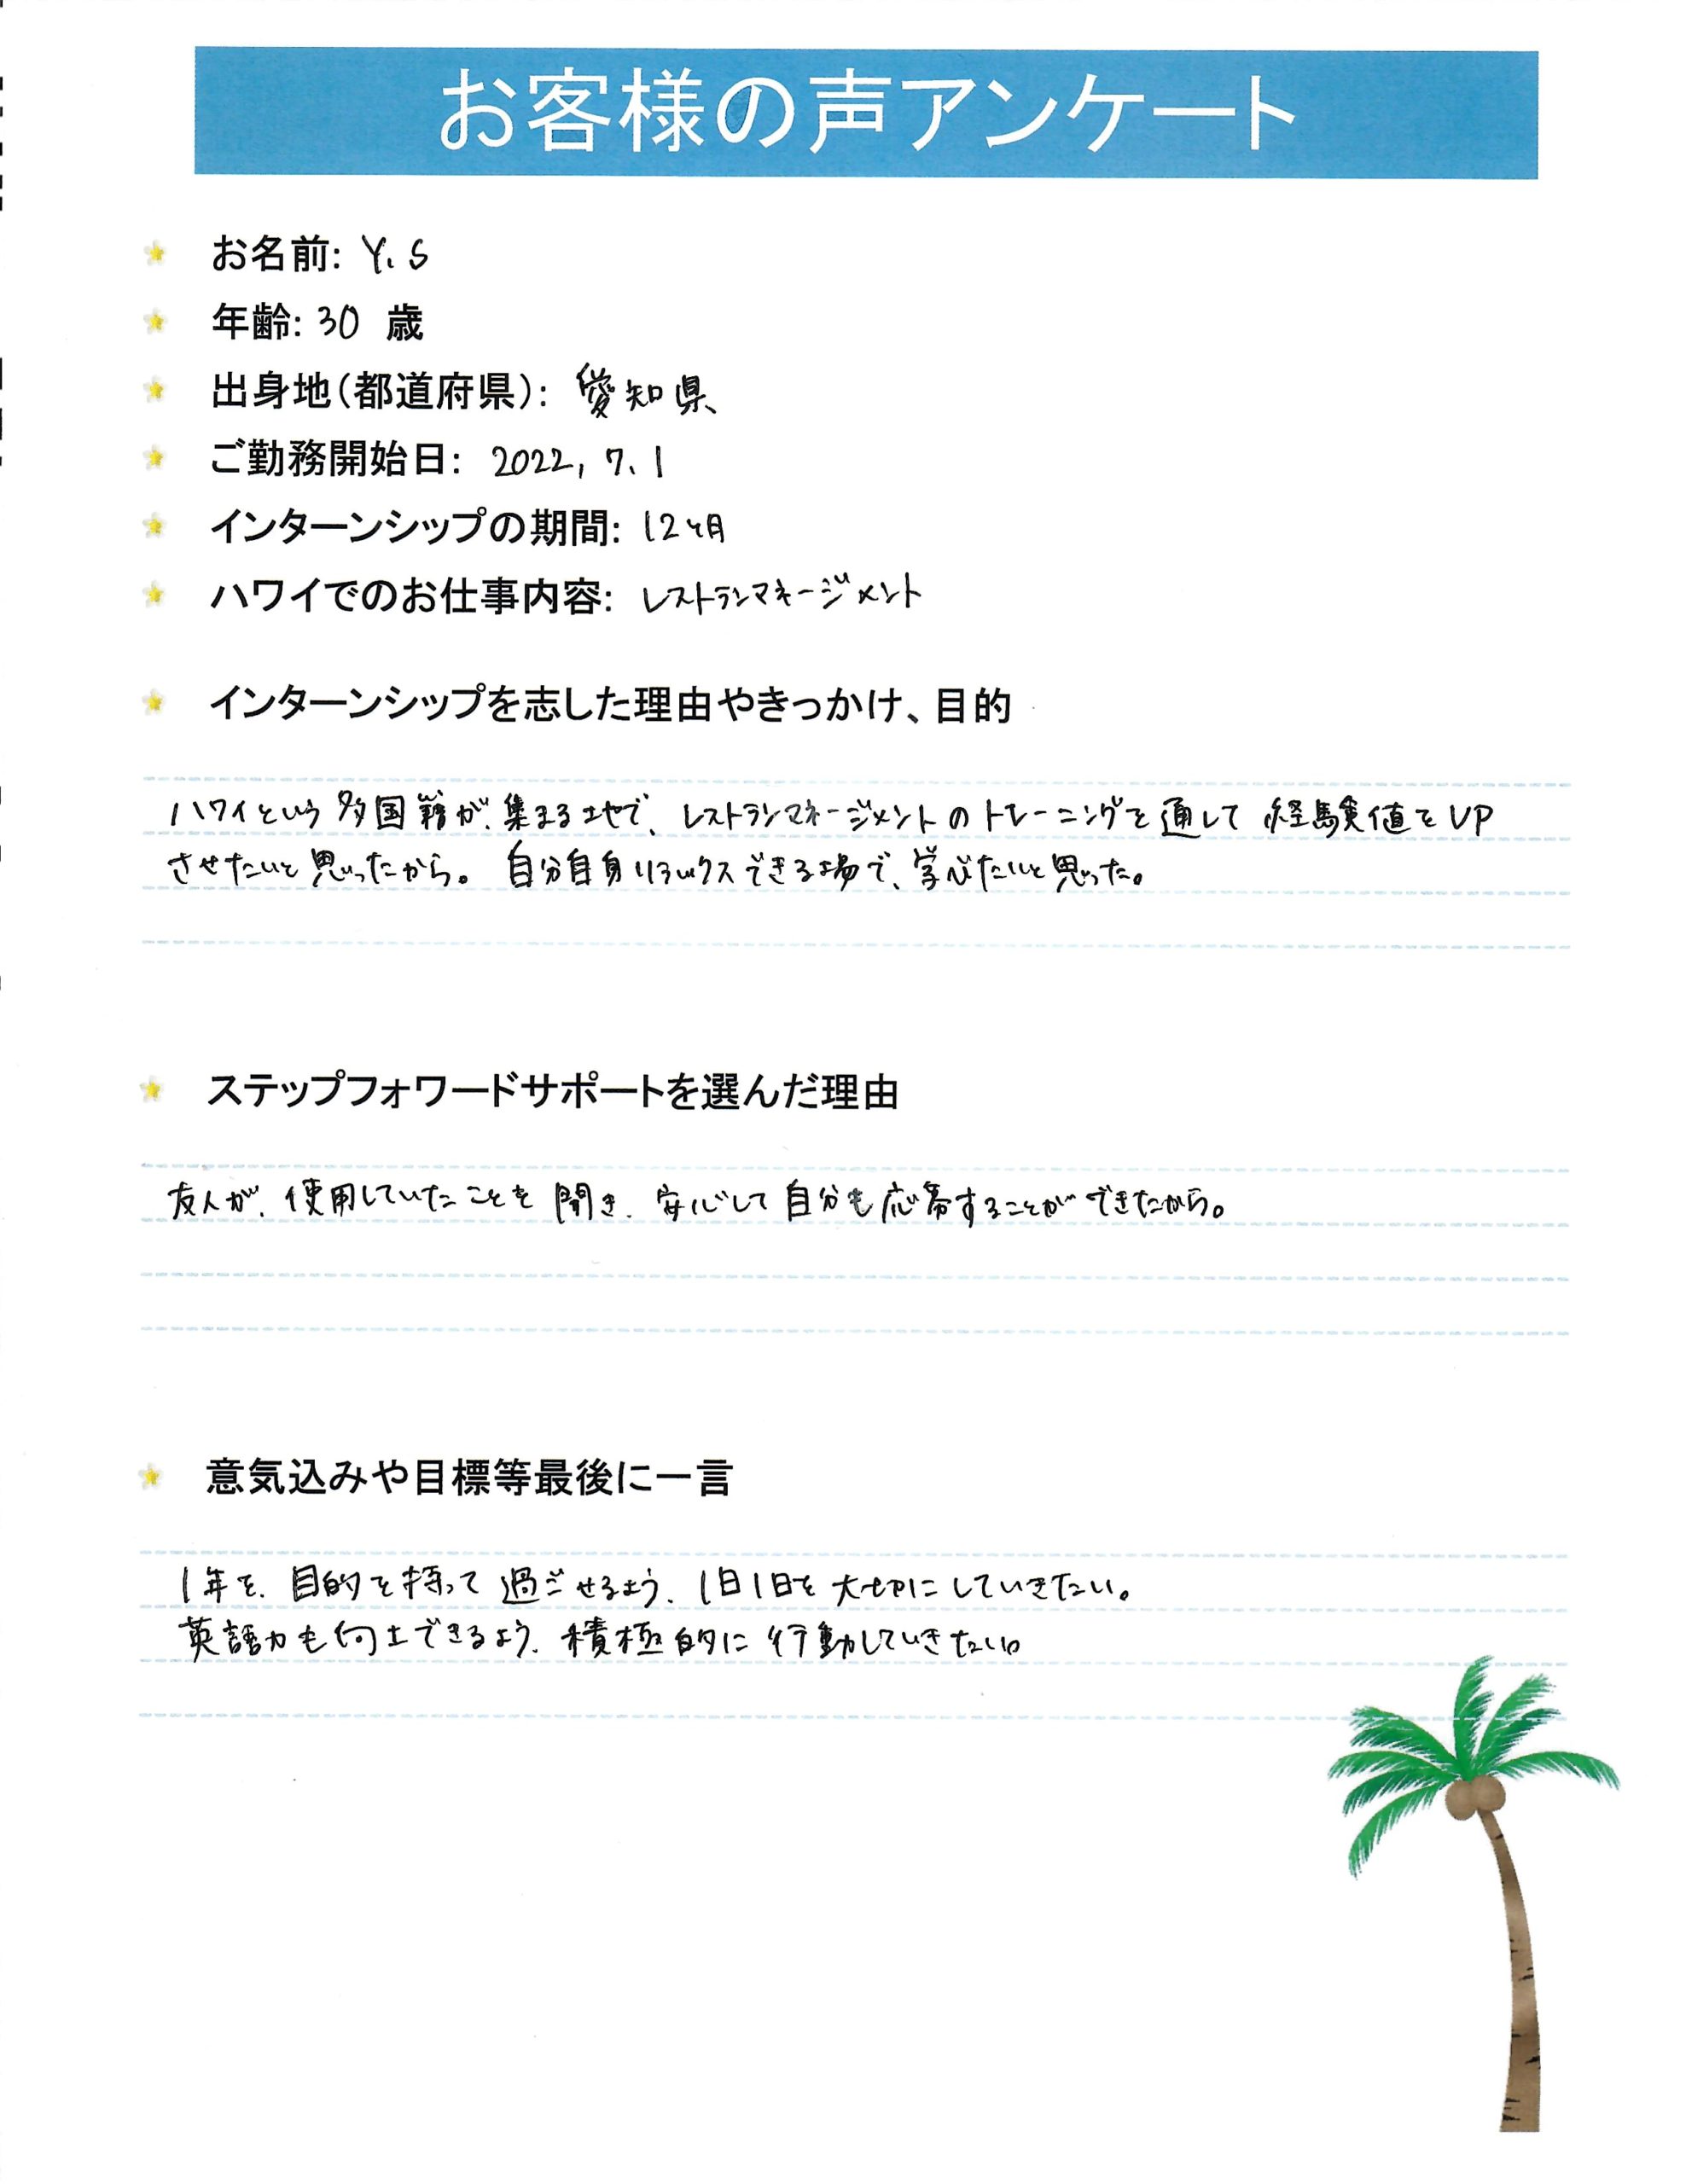 お客様の声アンケート
お名前: Y.S
年齢: 30 歳
出身地(都道府県): 愛知県
ご勤務開始日: 2022, 7. 1
インターンシップの期間: 12ヶ月
ハワイでのお仕事内容: レストランマネージメント
インターンシップを志した理由やきっかけ、目的
ハワイという多国籍が、集まる土地で、レストランマネージメントのトレーニングを通して経験値をUP
させたいと思ったから。自分自身リラックスできる場で、学びたいと思った。
ステップフォワードサポートを選んだ理由
友人が、使用していたことを聞き、安心して自分も応募することができたから。
意気込みや目標等最後に一言
1年を、目的を持って過ごせるよう、1日1日を大切にしていきたい。
英語力も向上できるよう、積極的に行動していきたい。